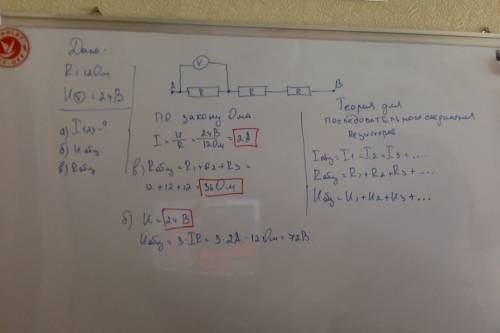 Дано:
R = 12 Ом
U(V) = 24 В
а) I
б) Uобщ
в) Rобщ
V
A
R
R
R
B
По закону Ома
I = U/R = 24В/12Ом = 2А
в) Rобщ = R1 + R2 + R3 =
12 + 12 + 12 = 36 Ом
б) U = 24 В
Uобщ = 3·IR = 3·2А·12Ом = 72В.
Теория для
последовательного соединения
резисторов
Iобщ = I1 = I2 = I3 = ....
Rобщ = R1 + R2 + R3 + ...
Uобщ = U1 + U2 + U3 + ...